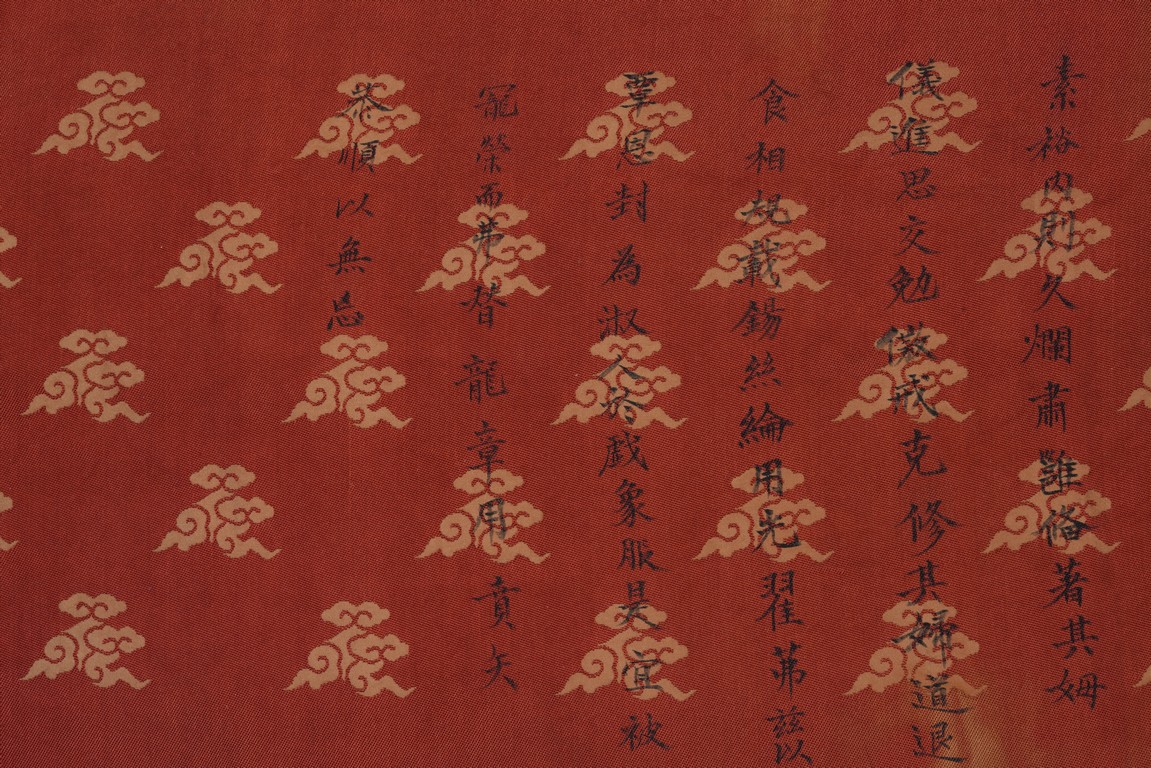 素裕內則久爛肅雝脩著其姆
儀進思交勉儆戒克修其婦道退
食相規載錫絲綸用光翟茀茲以
覃恩封為淑人於戲象服是宜被
寵榮而弗替龍章用賁矢
恭順以無忘